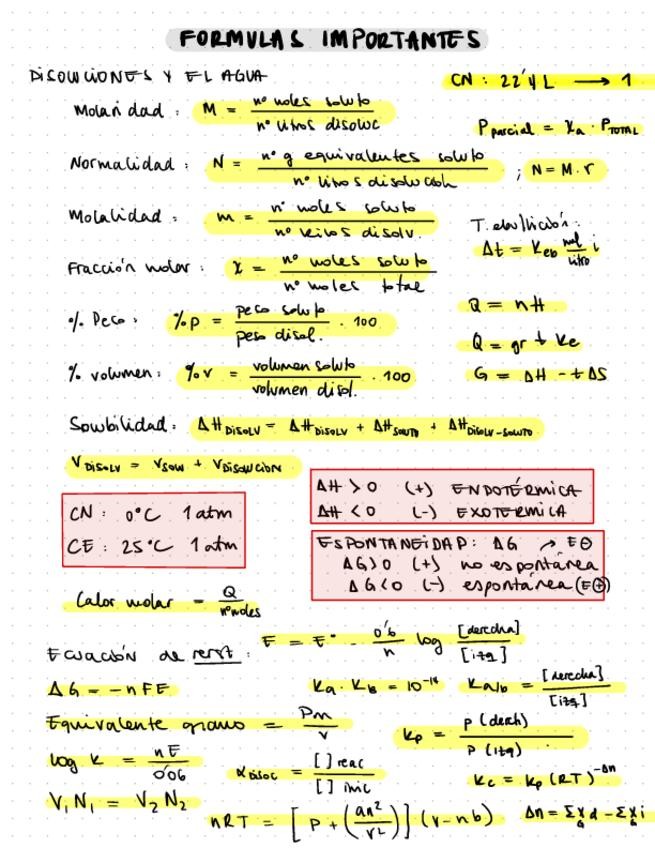 FORMULAS IMPORTANTES
DISOLUCIONES Y EL AGUA
CN: 22'4 L → 1
Molaridad: M = nº moles soluto / nº litros disoluc
P parcial = χa · P TOTAL
Normalidad: N = nº g equivalentes soluto / nº litros disolución ; N = M · r
Molalidad: m = nº moles soluto / nº kilos disolv.
T. ebullición:
Δt = Keb mol/litro i
Fracción molar: χ = nº moles soluto / nº moles total
% Peso: %p = peso soluto / peso disol. · 100
Q = nH
Q = gr t Ke
% volumen: %v = volumen soluto / volumen disol. · 100
G = ΔH - tΔS
Solubilidad: ΔH DISOLV = ΔH DISOLV + ΔH SOLUTO + ΔH DISOLV-SOLUTO
V DISOLV = V SOLU + V DISOLUCIÓN
ΔH > 0 (+) ENDOTÉRMICA
ΔH < 0 (-) EXOTÉRMICA
CN: 0°C 1 atm
CE: 25°C 1 atm
ESPONTANEIDAD: ΔG → E⊖
ΔG>0 (+) no espontánea
ΔG<0 (-) espontánea (E⊕)
Calor molar = Q / nº moles
Ecuación de nerst: E = E° - 0'6/n log [derecha]/[izq]
ΔG = -nFE
Ka · Kb = 10⁻¹⁴
Ka/b = [derecha]/[izq]
Equivalente gramo = Pm/v
Kp = P (derch) / P (izq)
log K = nE / 0'06
α DISOC = [] reac / [] inic
Kc = Kp (RT)^-Δn
V₁N₁ = V₂N₂
nRT = [P + (an²/V²)] (V - nb)
Δn =